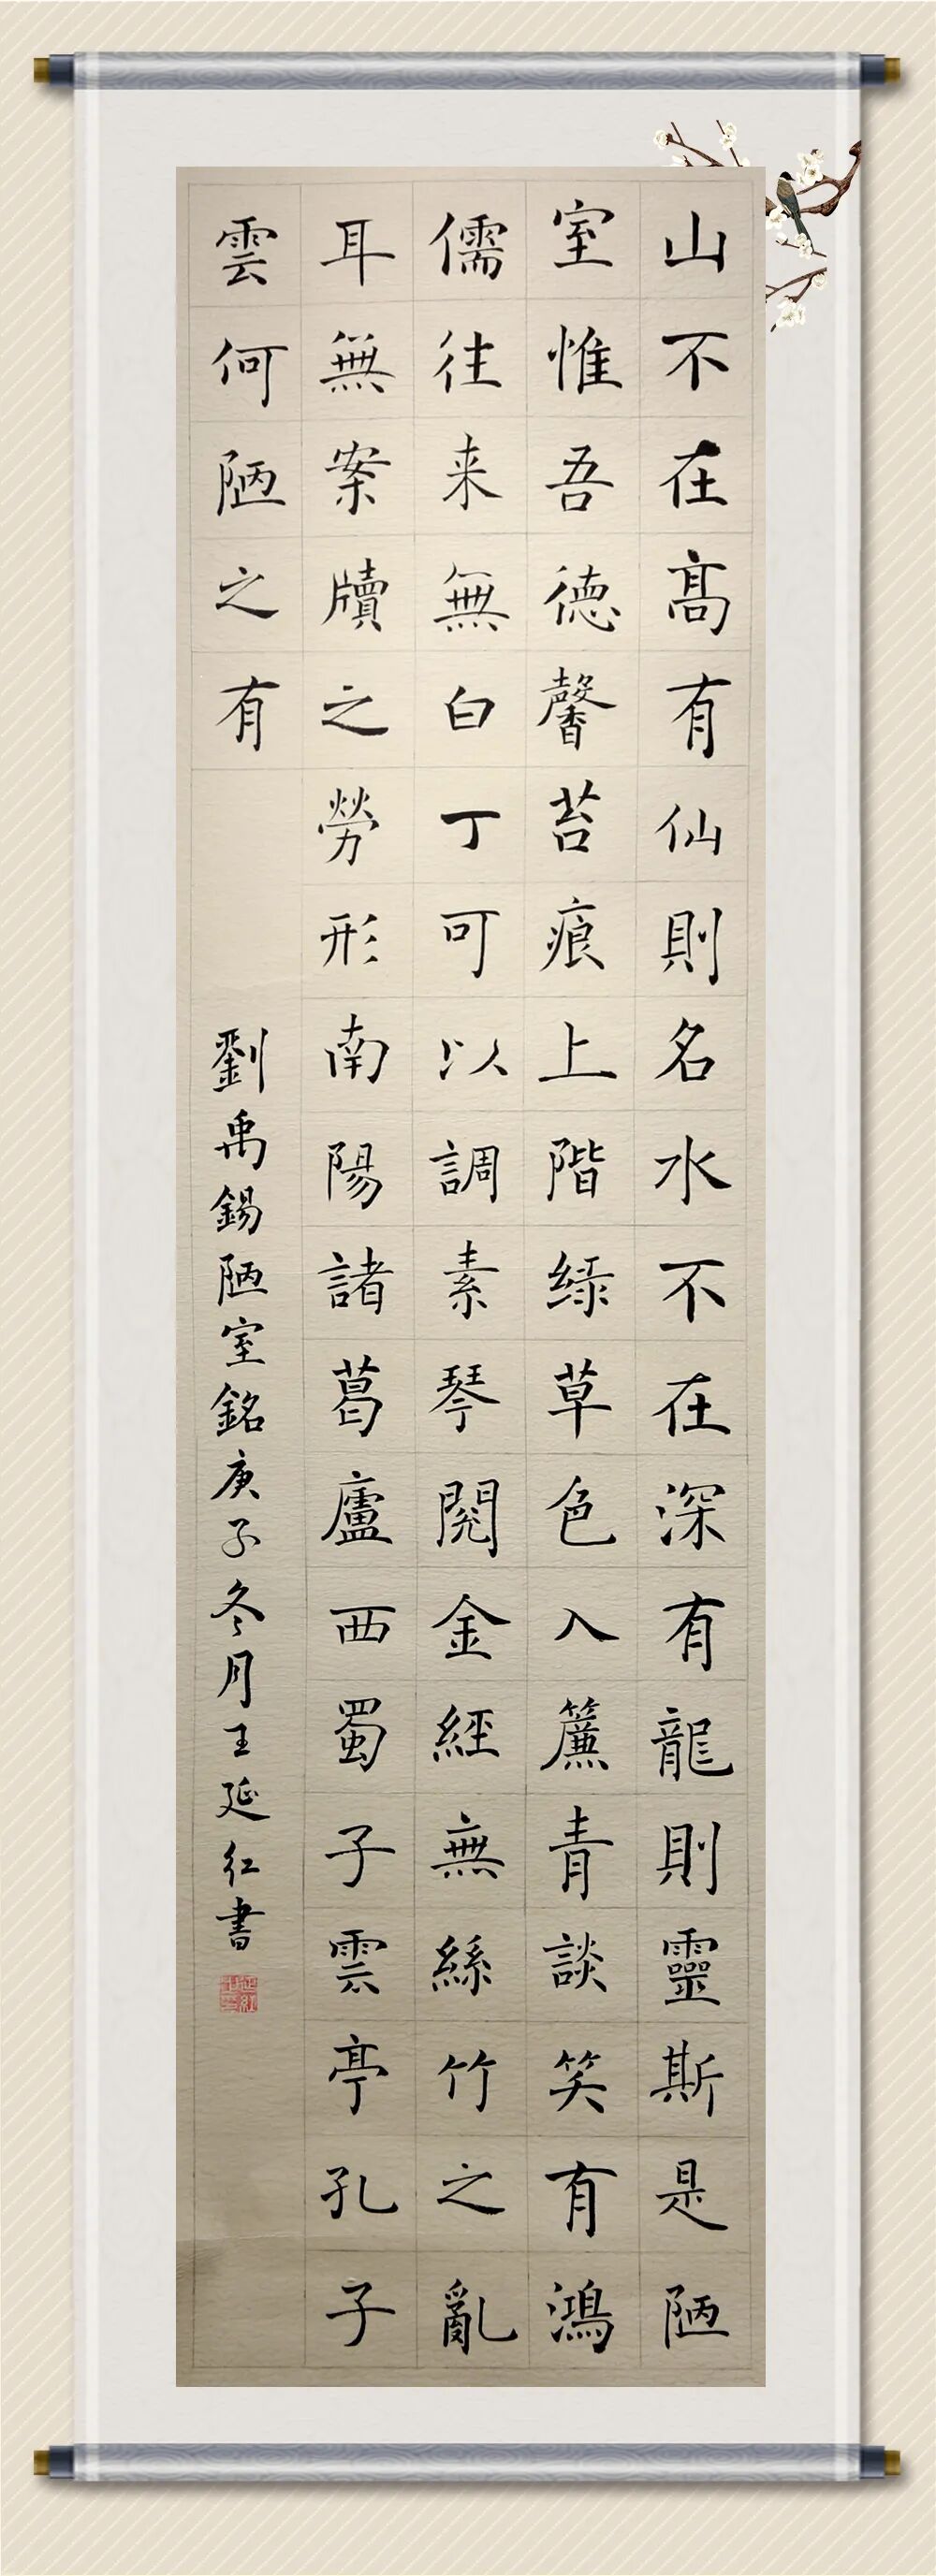 山不在高有仙則名水不在深有龍則靈斯是陋
室惟吾德馨苔痕上階緑草色入簾青談笑有鴻
儒往来無白丁可以調素琴閱金經無絲竹之亂
耳無案牘之勞形南陽諸葛廬西蜀子雲亭孔子
雲何陋之有
劉禹錫陋室銘庚子冬月王延红書